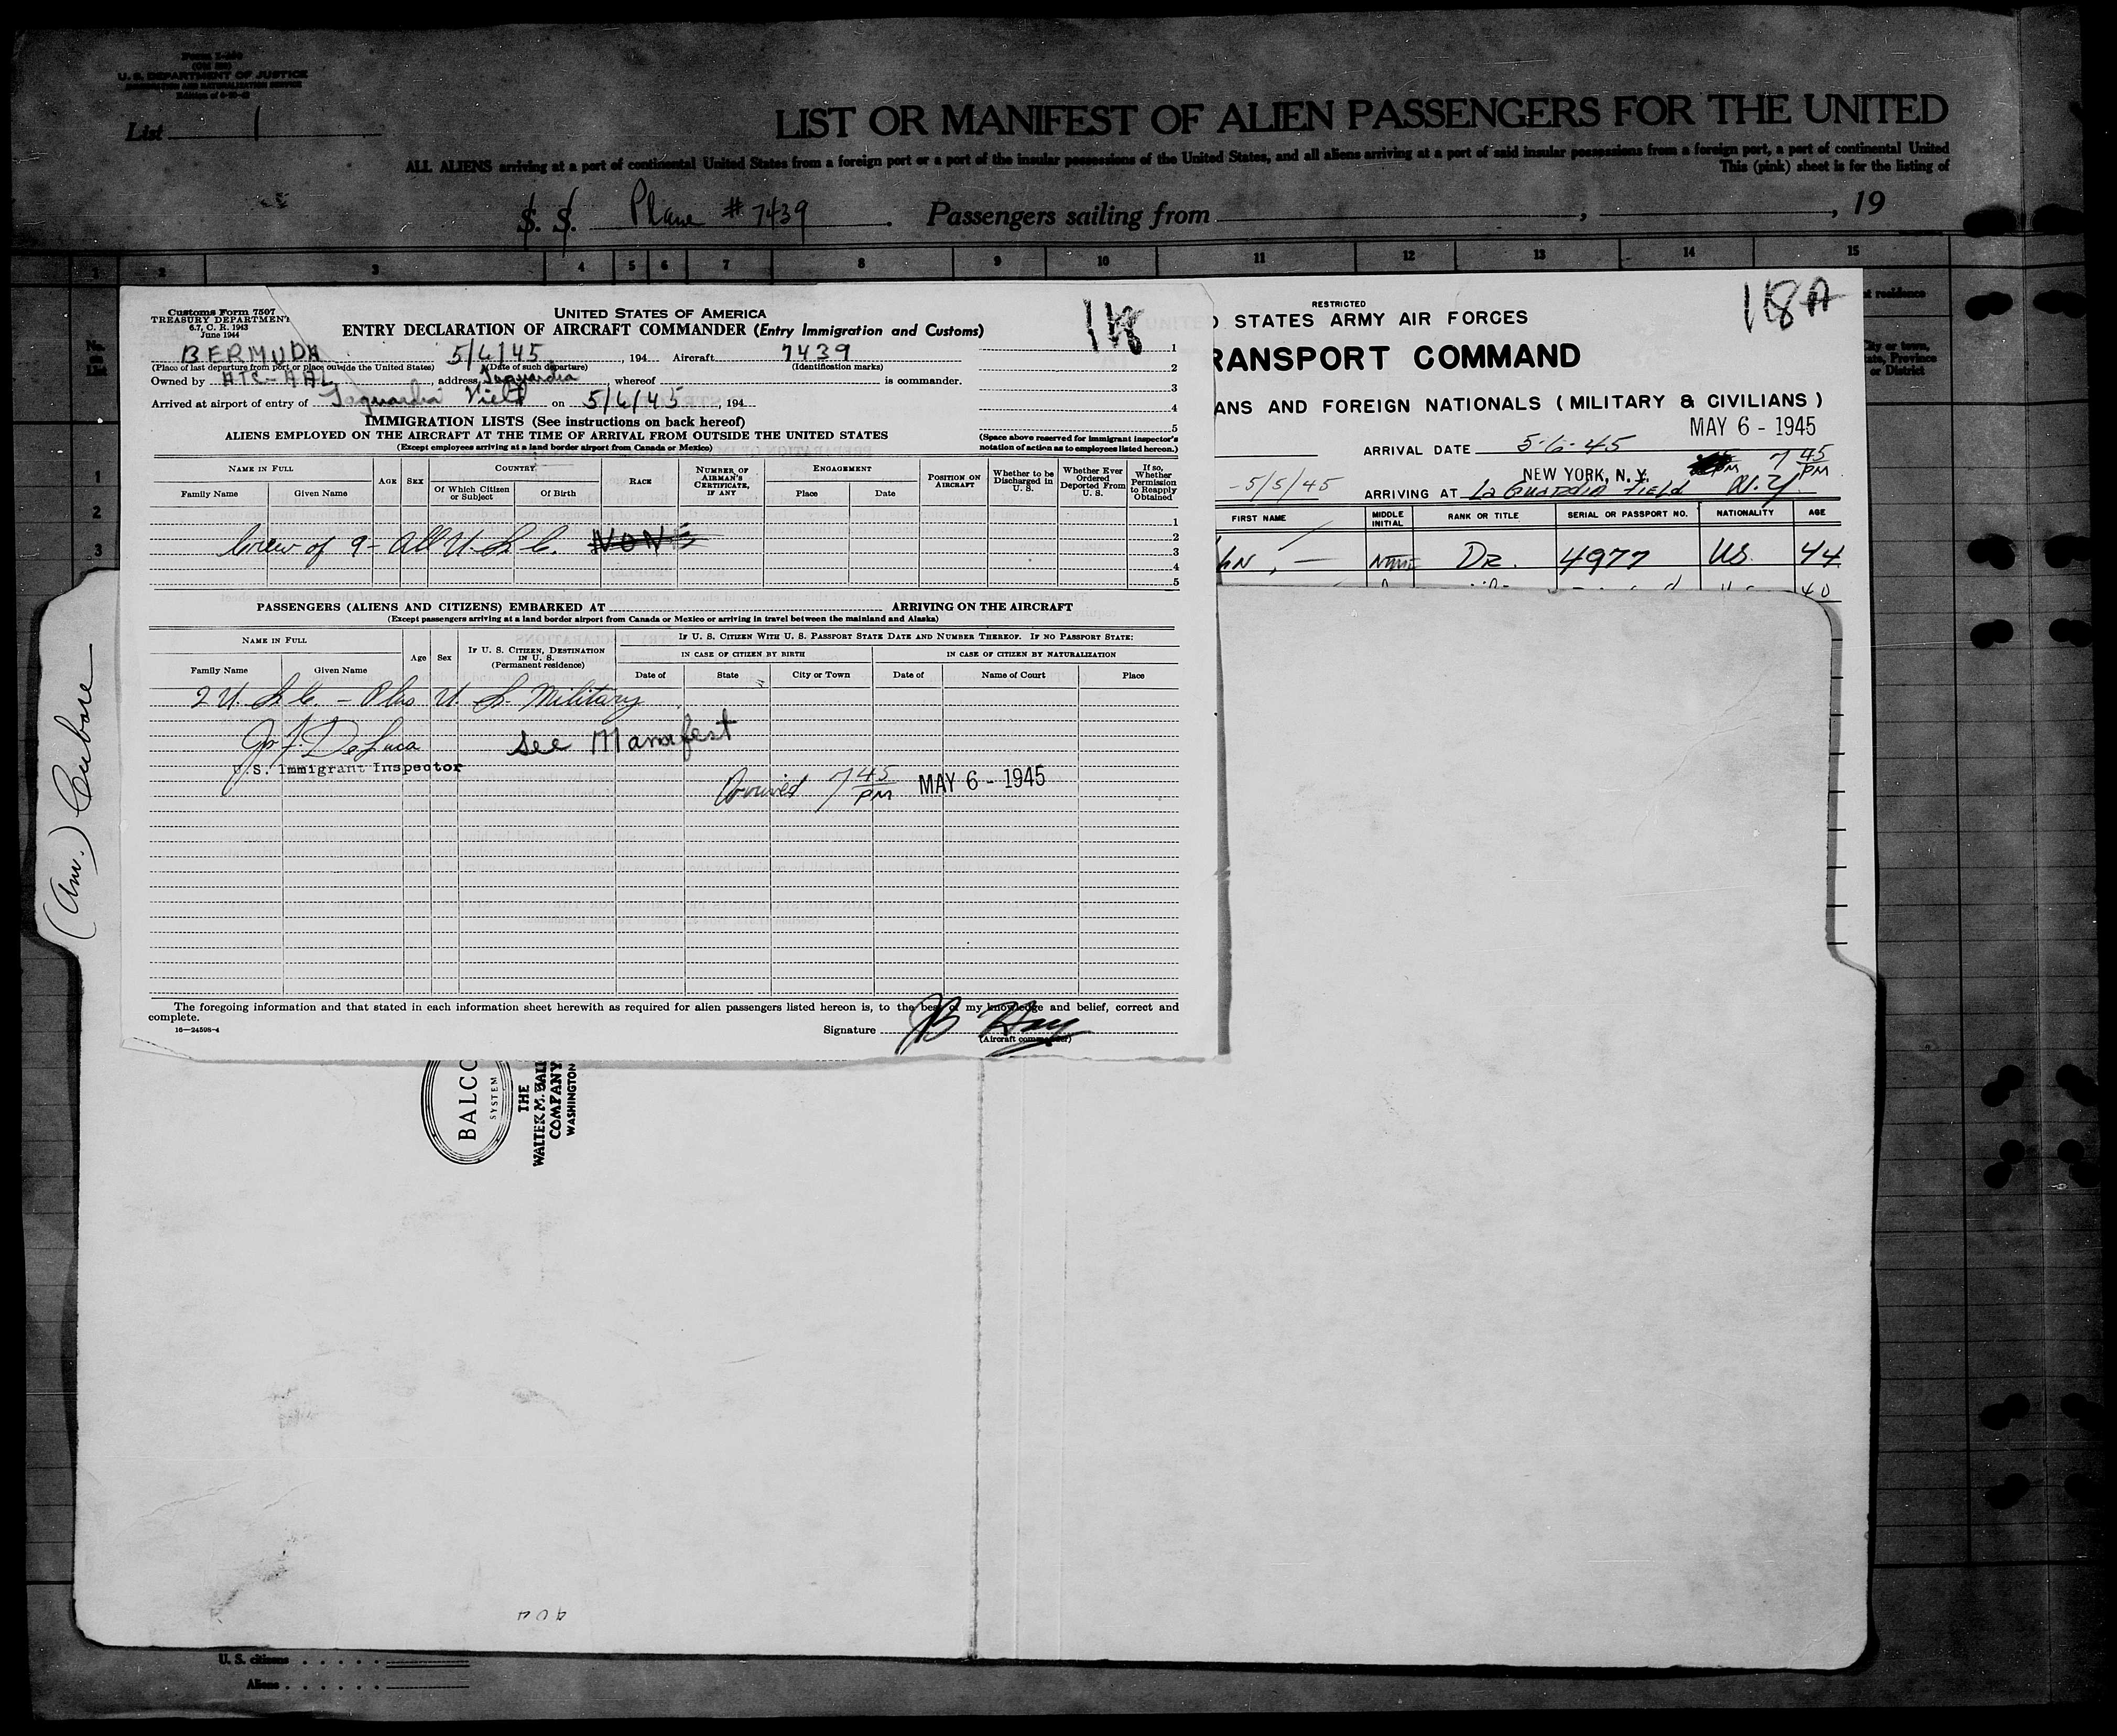 U. S. DEPARTMENT OF JUSTICE
IMMIGRATION AND NATURALIZATION SERVICE
List 1
LIST OR MANIFEST OF ALIEN PASSENGERS FOR THE UNITED
ALL ALIENS arriving at a port of continental United States from a foreign port or a port of the insular possessions of the United States, and all aliens arriving at a port of said insular possessions from a foreign port, a port of continental United
This (pink) sheet is for the listing of
S. S. Plane # 7439. Passengers sailing from , , 19
1 2 3 4 5 6 7 8 9 10 11 12 13 14 15
Customs Form 7507
TREASURY DEPARTMENT
6.7, C. R. 1943
June 1944
UNITED STATES OF AMERICA
ENTRY DECLARATION OF AIRCRAFT COMMANDER (Entry Immigration and Customs)
118
BERMUDA 5/6/45, 194 Aircraft 7439
(Place of last departure from port or place outside the United States) (Date of such departure) (Identification marks)
Owned by ATC-AAL, address Laguardia, whereof is commander.
Arrived at airport of entry of Laguardia Field on 5/6/45, 194
1
2
3
4
5
IMMIGRATION LISTS (See instructions on back hereof)
ALIENS EMPLOYED ON THE AIRCRAFT AT THE TIME OF ARRIVAL FROM OUTSIDE THE UNITED STATES
(Except employees arriving at a land border airport from Canada or Mexico)
(Space above reserved for immigrant inspector's notation of action as to employees listed hereon.)
NAME IN FULL AGE SEX COUNTRY RACE NUMBER OF AIRMAN'S CERTIFICATE, IF ANY ENGAGEMENT POSITION ON AIRCRAFT Whether to be Discharged in U. S. Whether Ever Ordered Deported From U. S. If so, Whether Permission to Reapply Obtained
Family Name Given Name Of Which Citizen or Subject Of Birth Place Date
Crew of 9 - All U. S. C. NONE
1
2
3
4
5
PASSENGERS (ALIENS AND CITIZENS) EMBARKED AT ARRIVING ON THE AIRCRAFT
(Except passengers arriving at a land border airport from Canada or Mexico or arriving in travel between the mainland and Alaska)
NAME IN FULL Age Sex IF U. S. CITIZEN, DESTINATION IN U. S. (Permanent residence) IF U. S. CITIZEN WITH U. S. PASSPORT STATE DATE AND NUMBER THEREOF. IF NO PASSPORT STATE:
IN CASE OF CITIZEN BY BIRTH IN CASE OF CITIZEN BY NATURALIZATION
Family Name Given Name Date of State City or Town Date of Name of Court Place
2 U. S. C. - Plus U. S. Military
Jos F. DeLuca see Manifest
U.S. Immigrant Inspector
Arrived 7 45 PM MAY 6 - 1945
The foregoing information and that stated in each information sheet herewith as required for alien passengers listed hereon is, to the best of my knowledge and belief, correct and
complete.
16-24598-4
Signature
(Aircraft commander)
RESTRICTED
118A
STATES ARMY AIR FORCES
RANSPORT COMMAND
ANS AND FOREIGN NATIONALS (MILITARY & CIVILIANS)
MAY 6 - 1945
ARRIVAL DATE 5-6-45
7 45 PM
-5/5/45
NEW YORK, N. Y.
ARRIVING AT La Guardia Field N.Y.
FIRST NAME MIDDLE INITIAL RANK OR TITLE SERIAL OR PASSPORT NO. NATIONALITY AGE
hn, - None Dr. 4977 US. 44
40
(Am.) Cubore
BALCO
SYSTEM
THE
WALTER M. BALL
COMPANY
WASHINGTON
404
U. S. citizens
Aliens